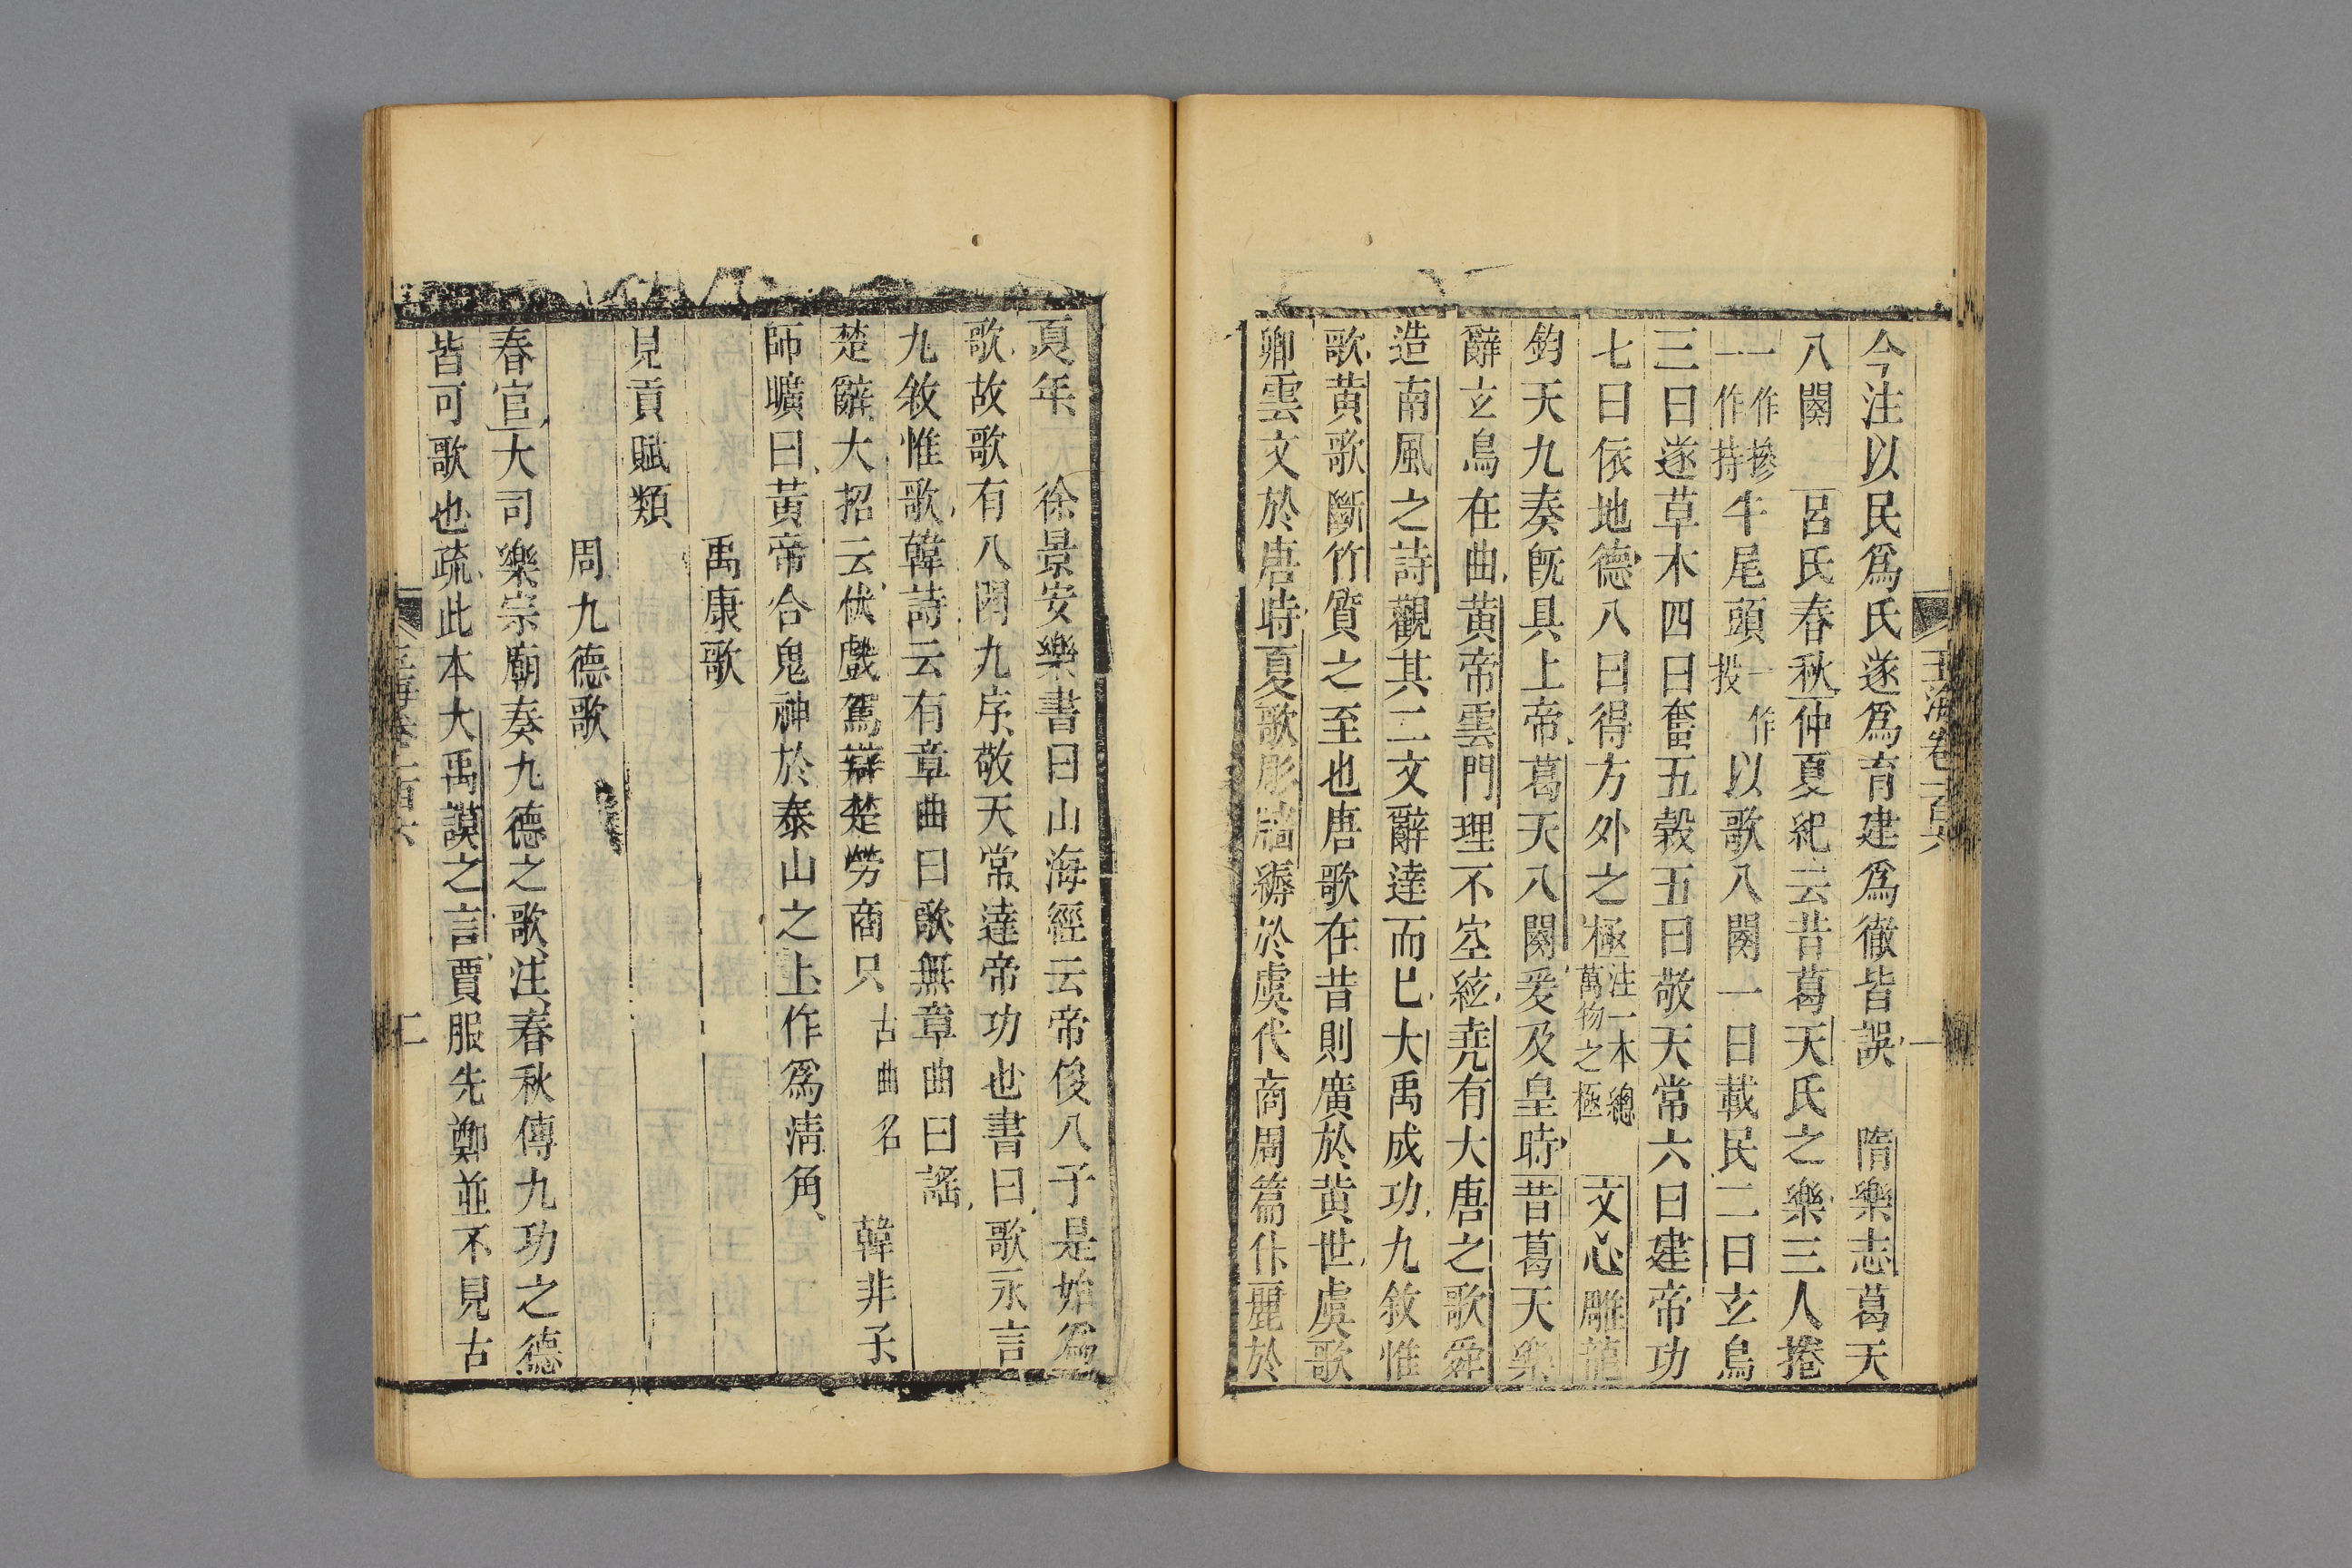 玉海卷一百六
一
今注以民爲氏遂爲育建爲徹皆誤 隋樂志葛天
八闋 呂氏春秋仲夏紀云昔葛天氏之樂三人捲
一作摻一作持牛尾頭一作投以歌八闋一曰載民二曰玄鳥
三曰遂草木四曰奮五穀五曰敬天常六曰建帝功
七曰依地德八曰得方外之極注一本總萬物之極 文心雕龍
鈞天九奏旣具上帝葛天八闋爰及皇時昔葛天樂
辭玄鳥在曲黃帝雲門理不空絃堯有大唐之歌舜
造南風之詩觀其二文辭達而已大禹成功九敘惟
歌黃歌斷竹質之至也唐歌在昔則廣於黃世虞歌
卿雲文於唐時夏歌彫牆縟於虞代商周篇什麗於
夏年 徐景安樂書曰山海經云帝俊八子是始爲
歌故歌有八闋九序敬天常達帝功也書曰歌永言
九敘惟歌韓詩云有章曲曰歌無章曲曰謠
楚辭大招云伏戲駕辯楚勞商只古曲名 韓非子
師曠曰黃帝合鬼神於泰山之上作爲淸角
禹康歌
見貢賦類
周九德歌
春官大司樂宗廟奏九德之歌注春秋傳九功之德
皆可歌也疏此本大禹謨之言賈服先鄭並不見古
玉海卷一百六
二